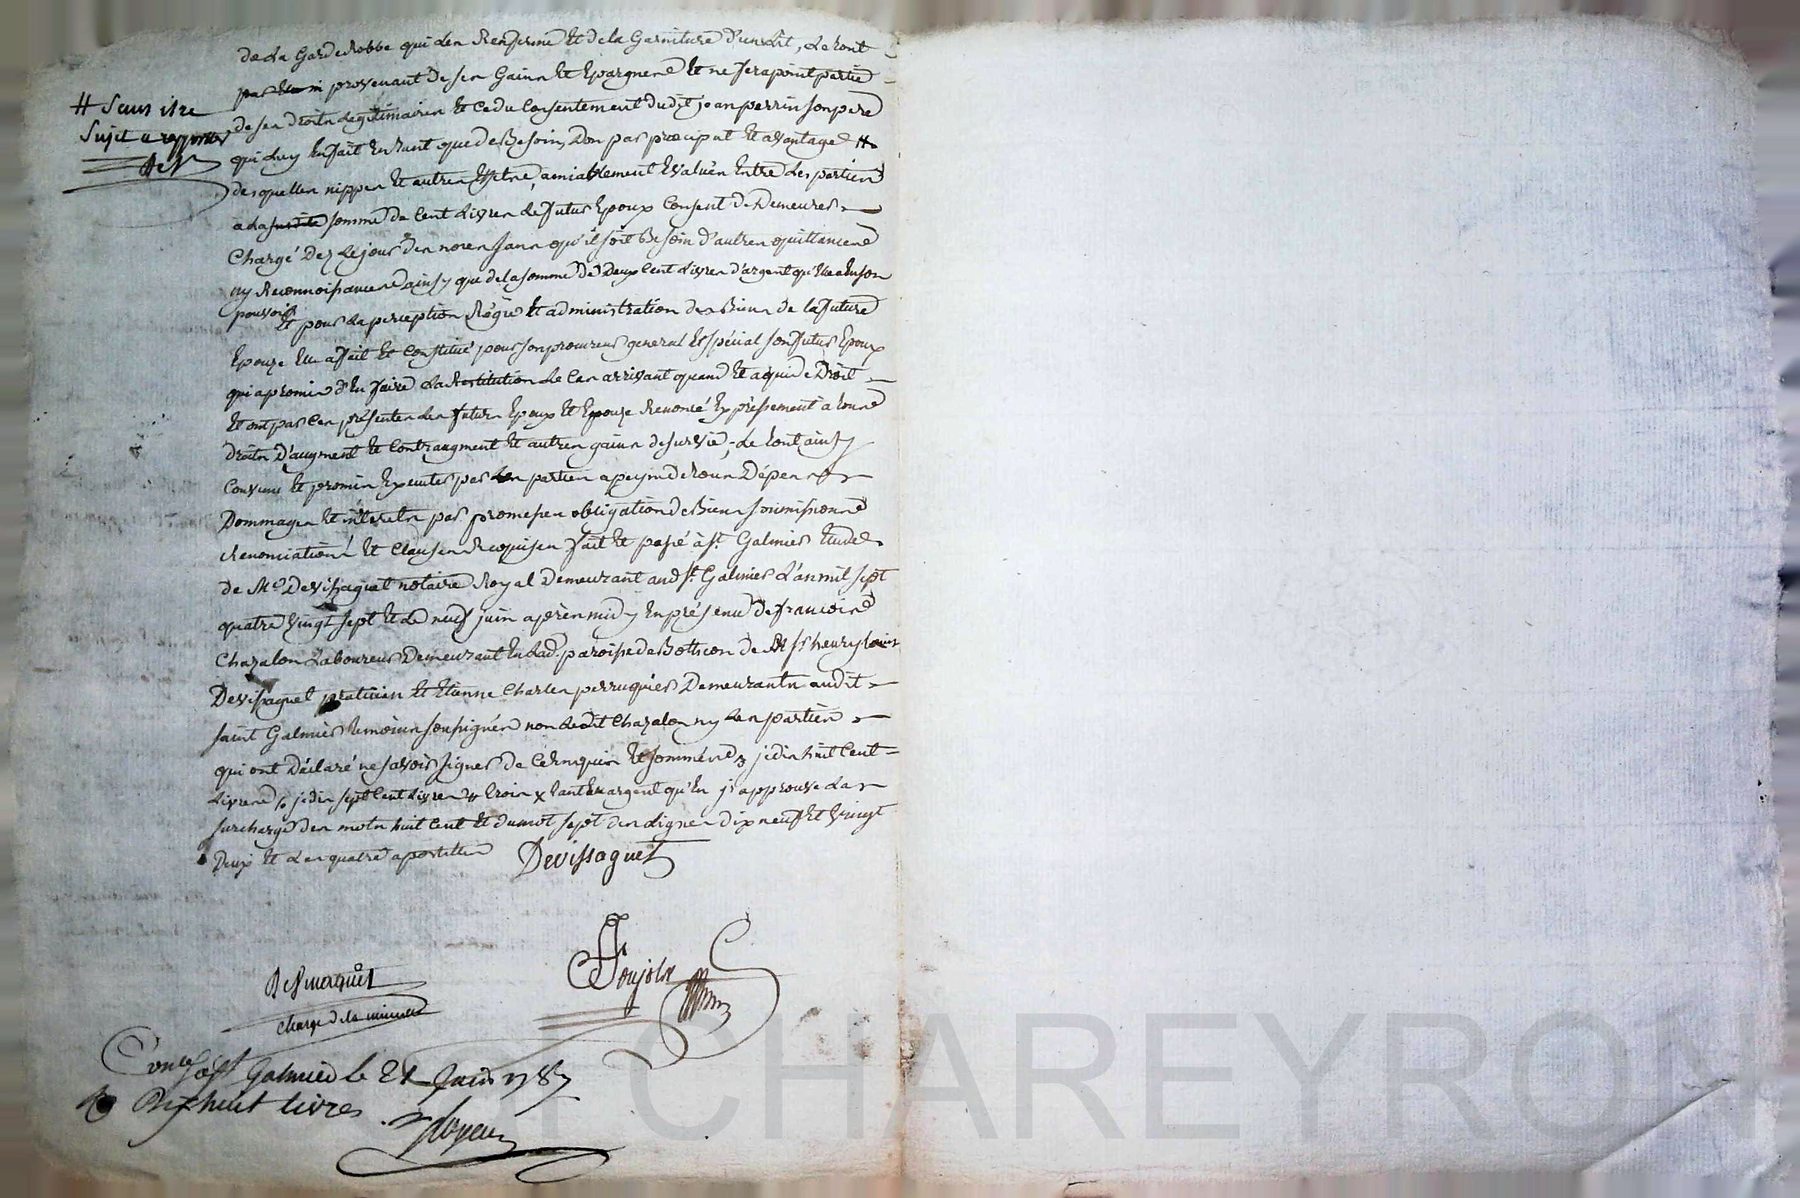 de la Garde Robbe qui les Renferme Et de la Garniture d'un lit, Le tout
provenant de ses Gains Et Epargnes Et ne fera point partie
# Sans être
Sujet a rapporter
de ses Droits Legitimaires Et ce du Consentement dudit jean perrin son pere
qui luy En fait En tant que de Besoin Don par preciput Et avantage #
desquelles nippes Et autres Effets, amiablement Evalués Entre les parties
a la somme de Cent Livres Le futur Epoux Consent de Demeurer
Chargé Dez le jour des noces sans qu'il soit Besoin d'autres quittances
ny Reconnoissances ainsy que de la somme de Deux Cent Livres d'argent qu'Elle a En son
pouvoir
Et pour la perception Régie Et administration des Biens de la future
Epouze Elle a fait Et Constitué pour son procureur general Et spécial son futur Epoux
qui a promis d'En faire la Restitution le Cas arrivant quand Et a qui de Droit
Et ont par Ces présentes les futurs Epoux Et Epouze Renoncé Expressement a tous
droits D'augment Et Contraugment Et autres gains de survie, Le tout ainsy
Convenu Et promis Executer par les parties a peyne de tous Dépens
Dommages Et interets par promesses obligation de Biens soumissions
Renonciations Et Clauses Requises fait Et passé à St. Galmier Etude
de Me Devissaguet notaire Royal Demeurant aud. St. Galmier L'an mil sept
quatre vingt sept Et Le neuf juin après midy En présence de francois
Chazalon Laboureur Demeurant En lad. paroisse de Bothéon de Sr. henry
Devissaguet praticien Et Etienne Charles perruquier Demeurants audit
saint Galmier temoins soussignés non ledit Chazalon ny Les parties
qui ont Déclaré ne savoir signer de Ce Enquis Et sommés je dis huit Cent
Livres je dis sept Cent Livres trois x tant En argent qu'En j'approuve la
surcharge des mots huit Cent Et du mot sept des Lignes Dix neuf Et Vingt
Deux Et Les quatre apostilles Devissaguet
Devissaguet
chargé de la minute
Goujole
Conlé a St Galmier le 21 Juin 1787
R Dix huit livres
CHAREYRON